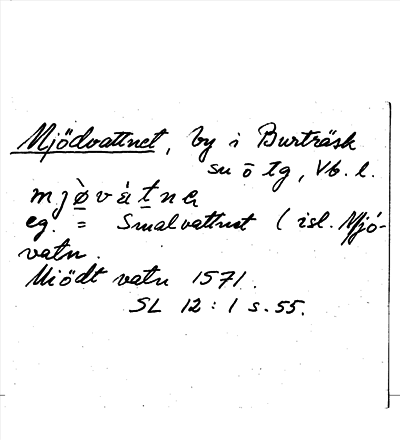 Mjödvattnet, by i Burträsk
sn o tg, Vb. l.
mjøvátne
eg. = Smalvattnet (isl. Mjó-
vatn.
Miödt vatn 1571.
SL 12:1 s. 55.